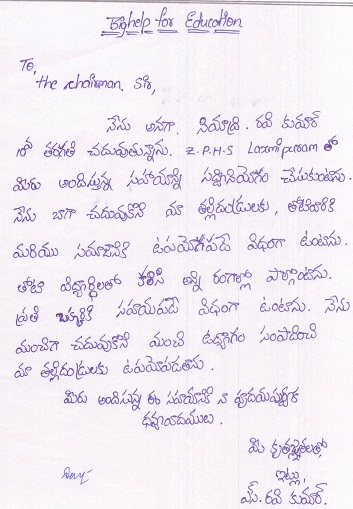 Bighelp for Education
To,
the chairman Sir,
నేను అనగా. సియాద్రి. రవి కుమార్
10వ తరగతి చదువుతున్నాను. Z.P.H.S Laxmipuram లో
మీరు అందిస్తున్న సహాయాన్ని సద్వినియోగం చేసుకుంటాను.
నేను బాగా చదువుకొని మా తల్లిదండ్రులకు, తోటివారికి
మరియు సమాజానికి ఉపయోగపడే విధంగా ఉంటాను.
తోటి విద్యార్థులతో కలిసి అన్ని రంగాల్లో పాల్గొంటాను.
ప్రతి ఒక్కరికి సహాయపడే విధంగా ఉంటాను. నేను
మంచిగా చదువుకొని మంచి ఉద్యోగం సంపాదించి
మా తల్లిదండ్రులకు ఉపయోపడతాను.
మీరు అందిస్తున్న ఈ సహాయానికి నా హృదయపూర్వక
ధన్యవాదములు.
మీ కృతజ్ఞతలతో,
ఇట్లు,
ఎస్. రవి కుమార్.